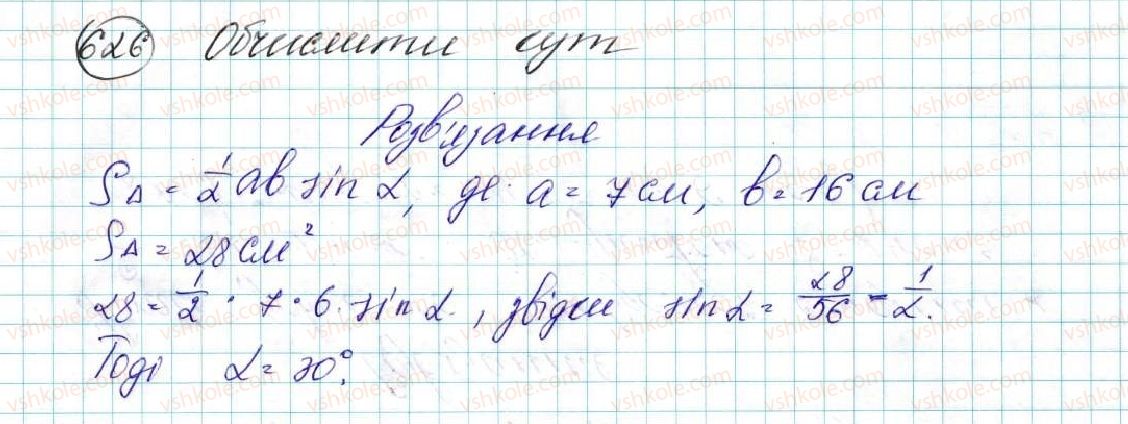 626 Обчислити кут
Розв'язання
S△ = 1/2 ab sin α, де a = 7 см, b = 16 см
S△ = 28 см²
28 = 1/2 · 7 · 6 · sin α, звідки sin α = 28/56 = 1/2.
Тоді α = 30°.
vshkole.com